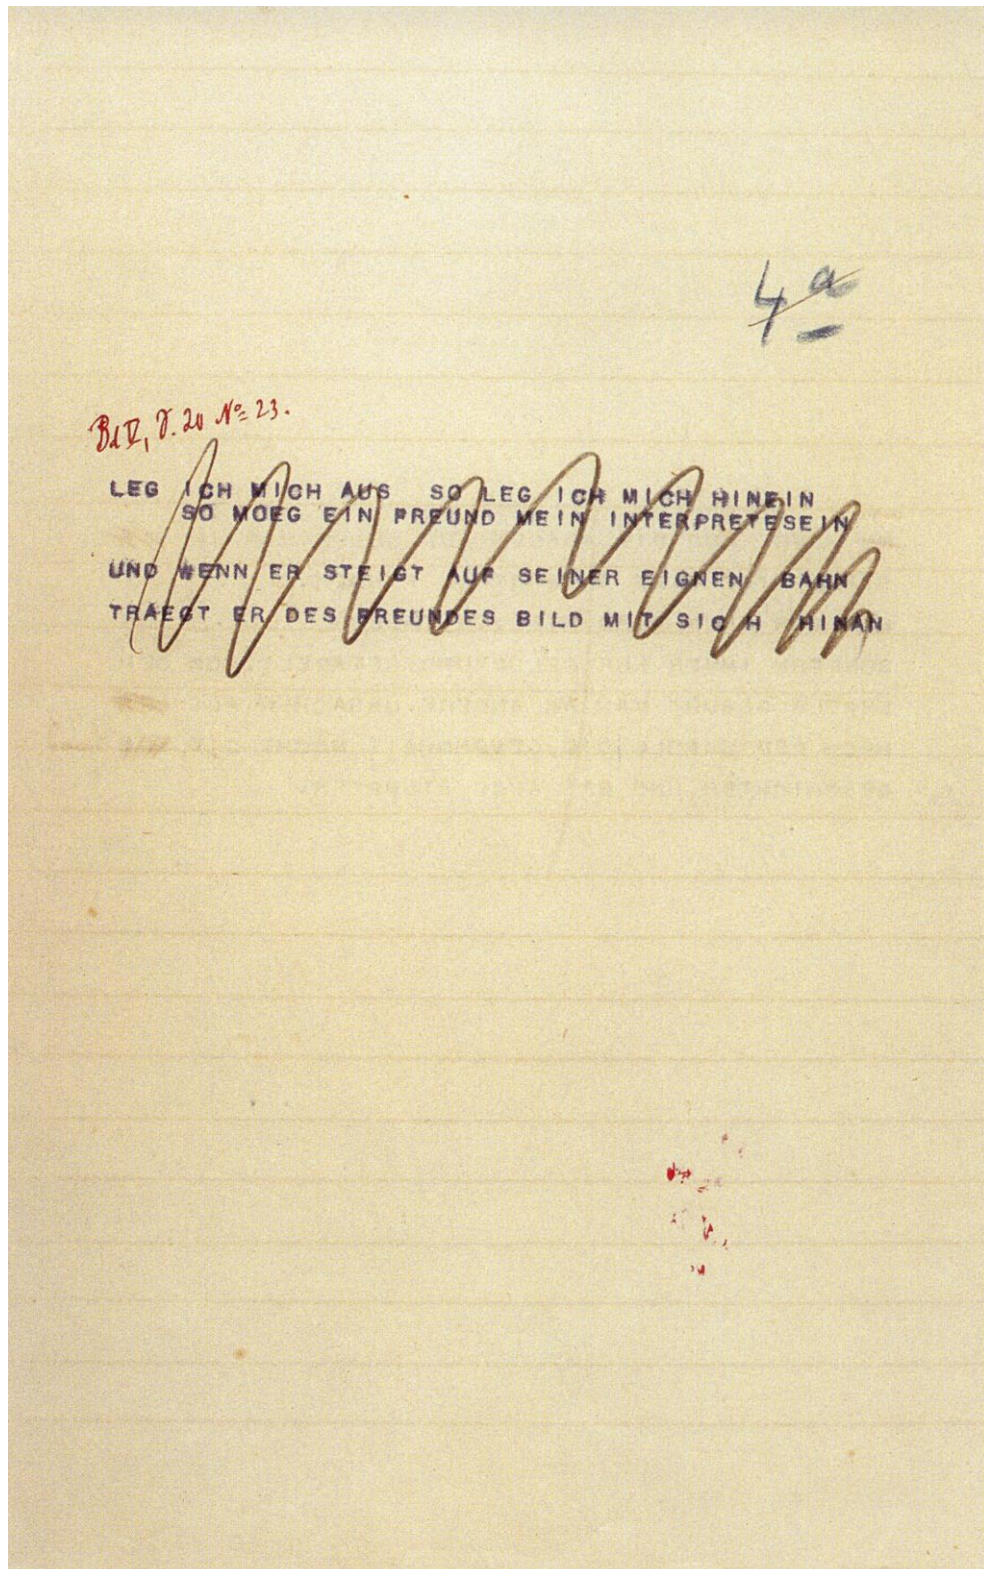 4a
Bd V, S. 20 No 23.
LEG ICH MICH AUS SO LEG ICH MICH HINEIN
SO MOEG EIN FREUND MEIN INTERPRETESEIN
UND WENN ER STEIGT AUF SEINER EIGNEN BAHN
TRAEGT ER DES FREUNDES BILD MIT SICH HINAN